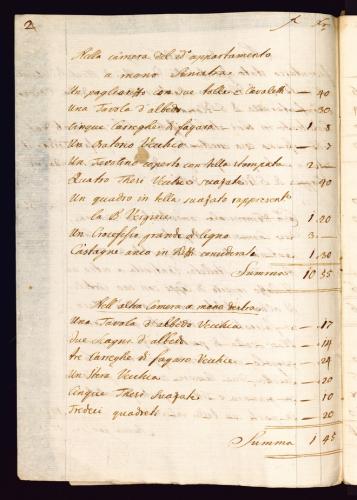 2 f Xr
Nella camera del d° appartamento
a mano Sinistra
Un pagliarizo con due tolle e Cavaletti — 40
Una Tavola d'albedo — 30
Cinque Carreghe di fagaro 1 8
Un Oratorio Vecchio — 7
Un Tavolino coperto con tella stampata 2 —
Quatro Theri Vecchi suazati — 40
Un quadro in tella suazato rappresent
la B Vergine 1 20
Un Crocefisso grande di legno 3 —
Castagne in considerate 1 30
Summa 10 55
Nell'altra Camera a mano destra
Una Tavola d'albedo Vecchia — 17
due d'albedo — 14
tre Carreghe di fagaro Vecchie — 24
Un Vecchia — 20
Cinque Theri suazati — 10
Tredeci quadreti — 20
Summa 1 45